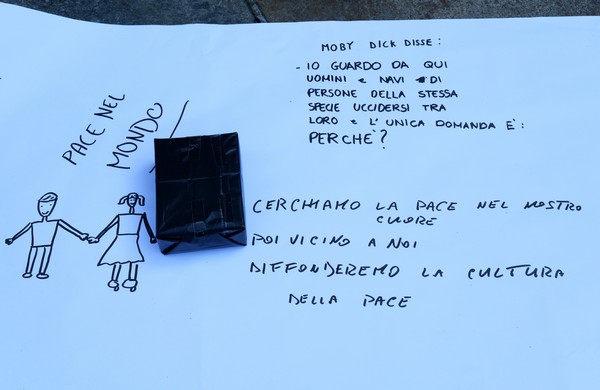 PACE NEL
MONDO
MOBY DICK DISSE:
- IO GUARDO DA QUI
UOMINI E NAVI DI
PERSONE DELLA STESSA
SPECIE UCCIDERSI TRA
LORO E L'UNICA DOMANDA È:
PERCHÈ?
CERCHIAMO LA PACE NEL NOSTRO
CUORE
POI VICINO A NOI
DIFFONDEREMO LA CULTURA
DELLA PACE